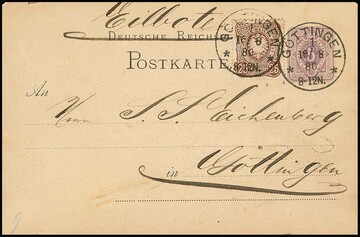 Eilbote
DEUTSCHE REICHS
POSTKARTE
GÖTTINGEN
8
86
8-12N.
GÖTTINGEN
1
16 8
86
8-12N.
An
Herrn S. S. Eichenberg
in Göttingen